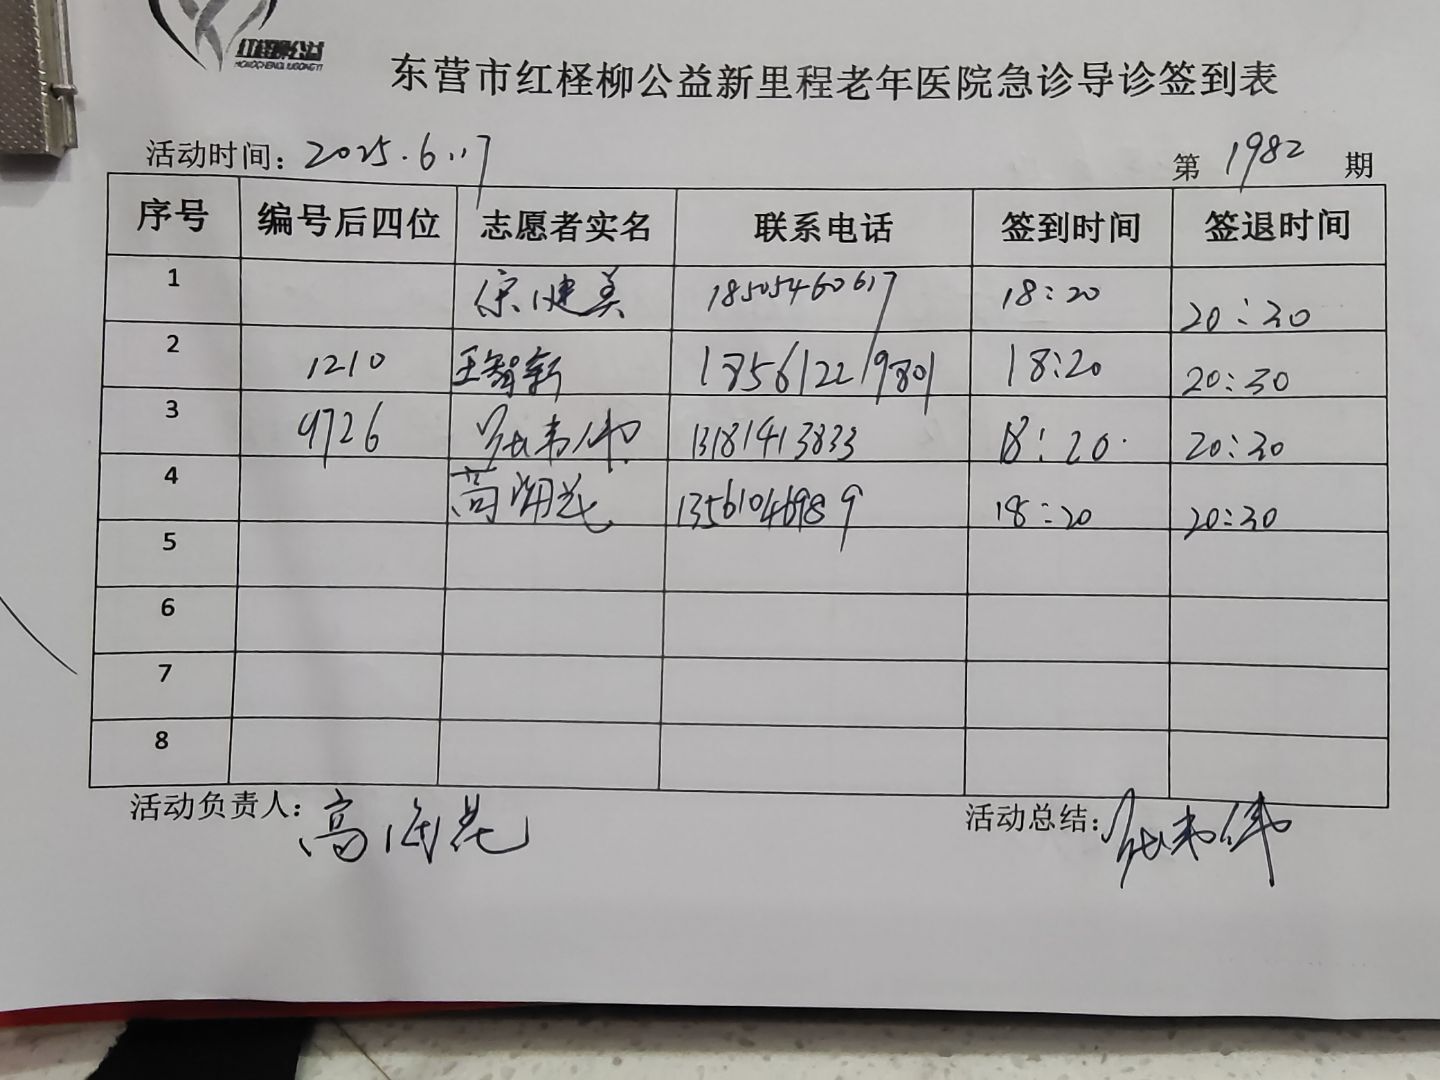 红柽柳公益
东营市红柽柳公益新里程老年医院急诊导诊签到表
活动时间：2025.6.17 第 1982 期
序号 编号后四位 志愿者实名 联系电话 签到时间 签退时间
1 18505460617 18:20 20:30
2 1210 王智新 185612219801 18:20 20:30
3 9726 13181413833 18:20 20:30
4 高 13561046989 18:20 20:30
5
6
7
8
活动负责人：高 活动总结：